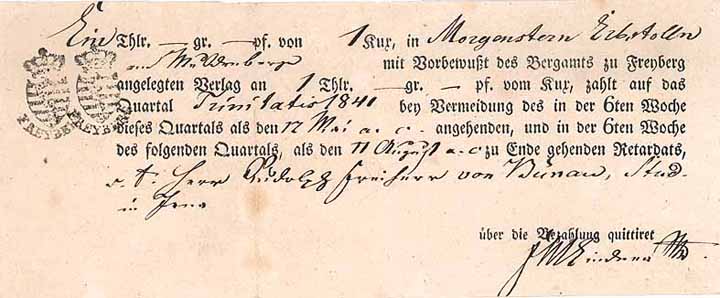 Ein Thlr. — gr. — pf. von 1 Kux, in Morgenstern Erbstolln
am Muldenberge mit Vorbewußt des Bergamts zu Freyberg
angelegten Verlag an 1 Thlr. — gr. — pf. vom Kux, zahlt auf das
Quartal Trinitatis 1841 bey Vermeidung des in der 6ten Woche
dieses Quartals als den 17 Mai a. c. angehenden, und in der 6ten Woche
des folgenden Quartals, als den 11 August a. c. zu Ende gehenden Retardats,
Herr Rudolph Freiherr von Bünau, Stud.
in Jena
über die Bezahlung quittiret
FREYBERG FREYBERG